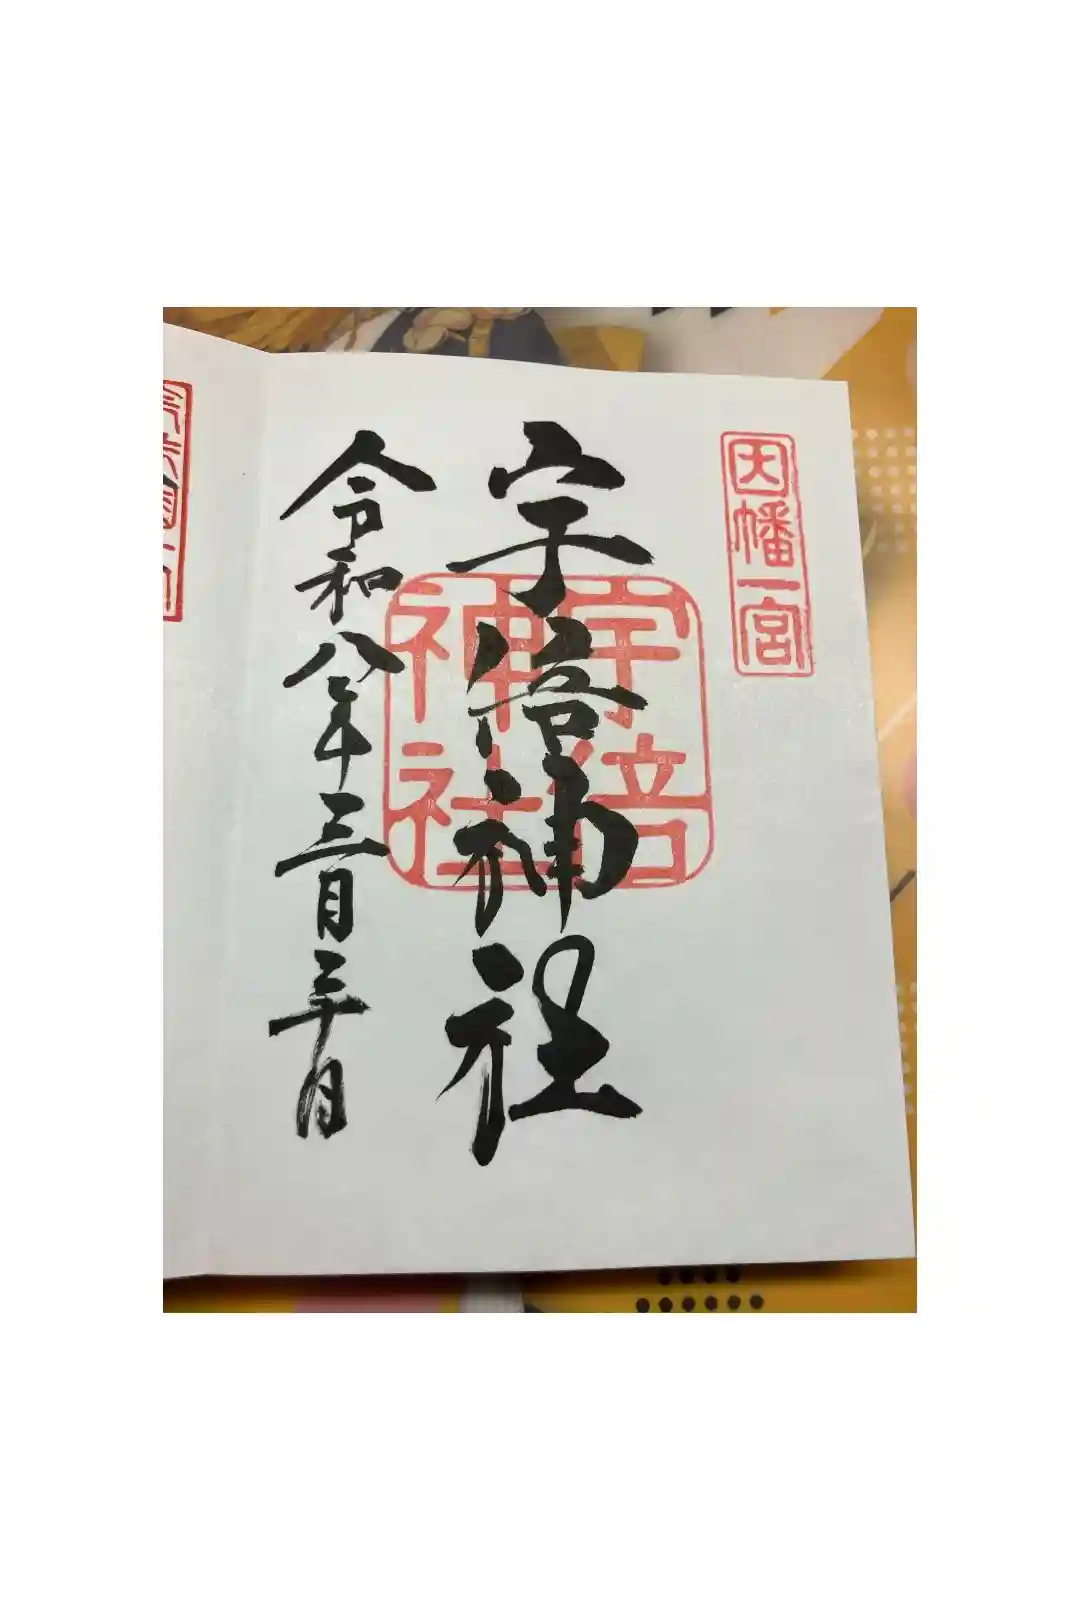 因幡一宮
宇倍神社
宇倍
神社
令和八年三月三十日